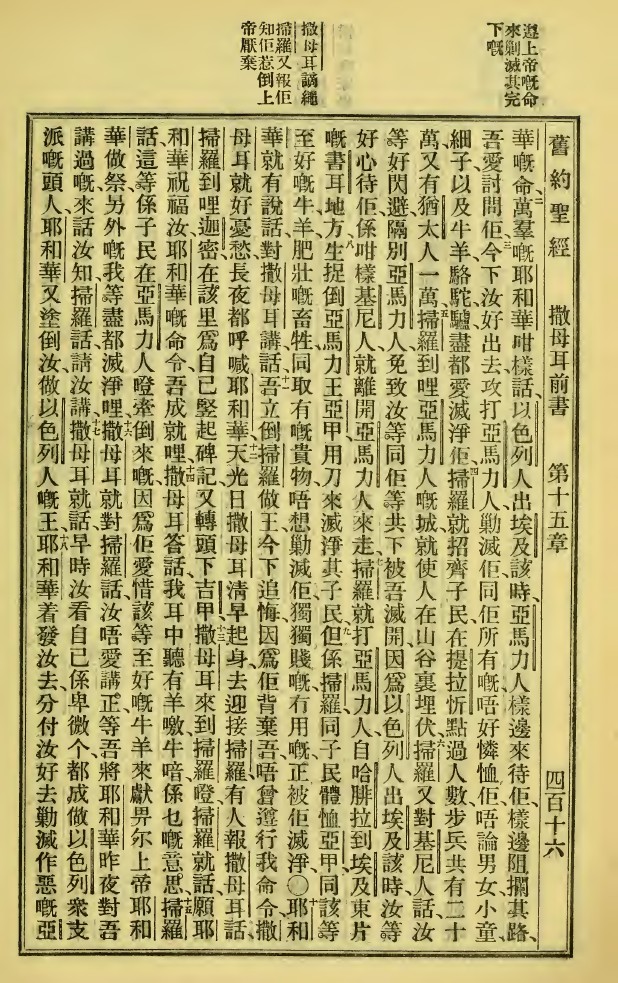 遵上帝嘅命
來剿滅其完
下嘅
撒母耳譎縄
掃羅又報佢
知佢惹倒上
帝厭棄
舊約聖經 撒母耳前書 第十五章 四百十六
華嘅命、二萬羣嘅耶和華咁樣話、以色列人出埃及該時、亞馬力人樣邊來待佢、樣邊阻攔其路、
吾愛討問佢、三今下汝好出去攻打亞馬力人、勦滅佢同佢所有嘅、唔好憐恤佢、唔論男女小童、
細子、以及牛羊駱駝驢、盡都愛滅淨佢、四掃羅就招齊子民在提拉忻、點過人數、步兵共有二十
萬、又有猶太人一萬、五掃羅到哩亞馬力人嘅城、就使人在山谷裏埋伏、六掃羅又對基尼人話、汝
等好閃避隔別亞馬力人、免致汝等同佢等共下被吾滅開、因爲以色列人出埃及該時、汝等
好心待佢、係咁樣基尼人就離開亞馬力人來走、七掃羅就打亞馬力人、自哈腓拉到埃及東片
嘅書耳地方、八生捉倒亞馬力王亞甲、用刀來滅淨其子民、九但係掃羅同子民體恤亞甲、同該等
至好嘅牛羊、肥壯嘅畜牲、同取有嘅貴物、唔想勦滅佢、獨獨賤嘅冇用嘅、正被佢滅淨、〇十耶和
華就有說話對撒母耳講話、十一吾立倒掃羅做王、今下追悔、因爲佢背棄吾、唔曾遵行我命令、撒
母耳就好憂愁、長夜都呼喊耶和華、十二天光日撒母耳清早起身、去迎接掃羅、有人報撒母耳話、
掃羅到哩迦密、在該里爲自己竪起碑記、又轉頭下吉甲、十三撒母耳來到掃羅㬝、掃羅就話、願耶
和華祝福汝、耶和華嘅命令、吾成就哩、十四撒母耳答話、我耳中聽有羊噭牛喑、係乜嘅意思、十五掃羅
話、這等係子民在亞馬力人㬝牽倒來嘅、因爲佢愛惜該等至好嘅牛羊、來獻畀尔上帝耶和
華做祭、另外嘅我等盡都滅淨哩、十六撒母耳就對掃羅話、汝唔愛講正、等吾將耶和華昨夜對吾
講過嘅來話汝知、掃羅話、請汝講、十七撒母耳就話、早時汝看自己係卑微个、都成做以色列衆支
派嘅頭人、耶和華又塗倒汝、做以色列人嘅王、十八耶和華着發汝去、分付汝好去勦滅作惡嘅亞